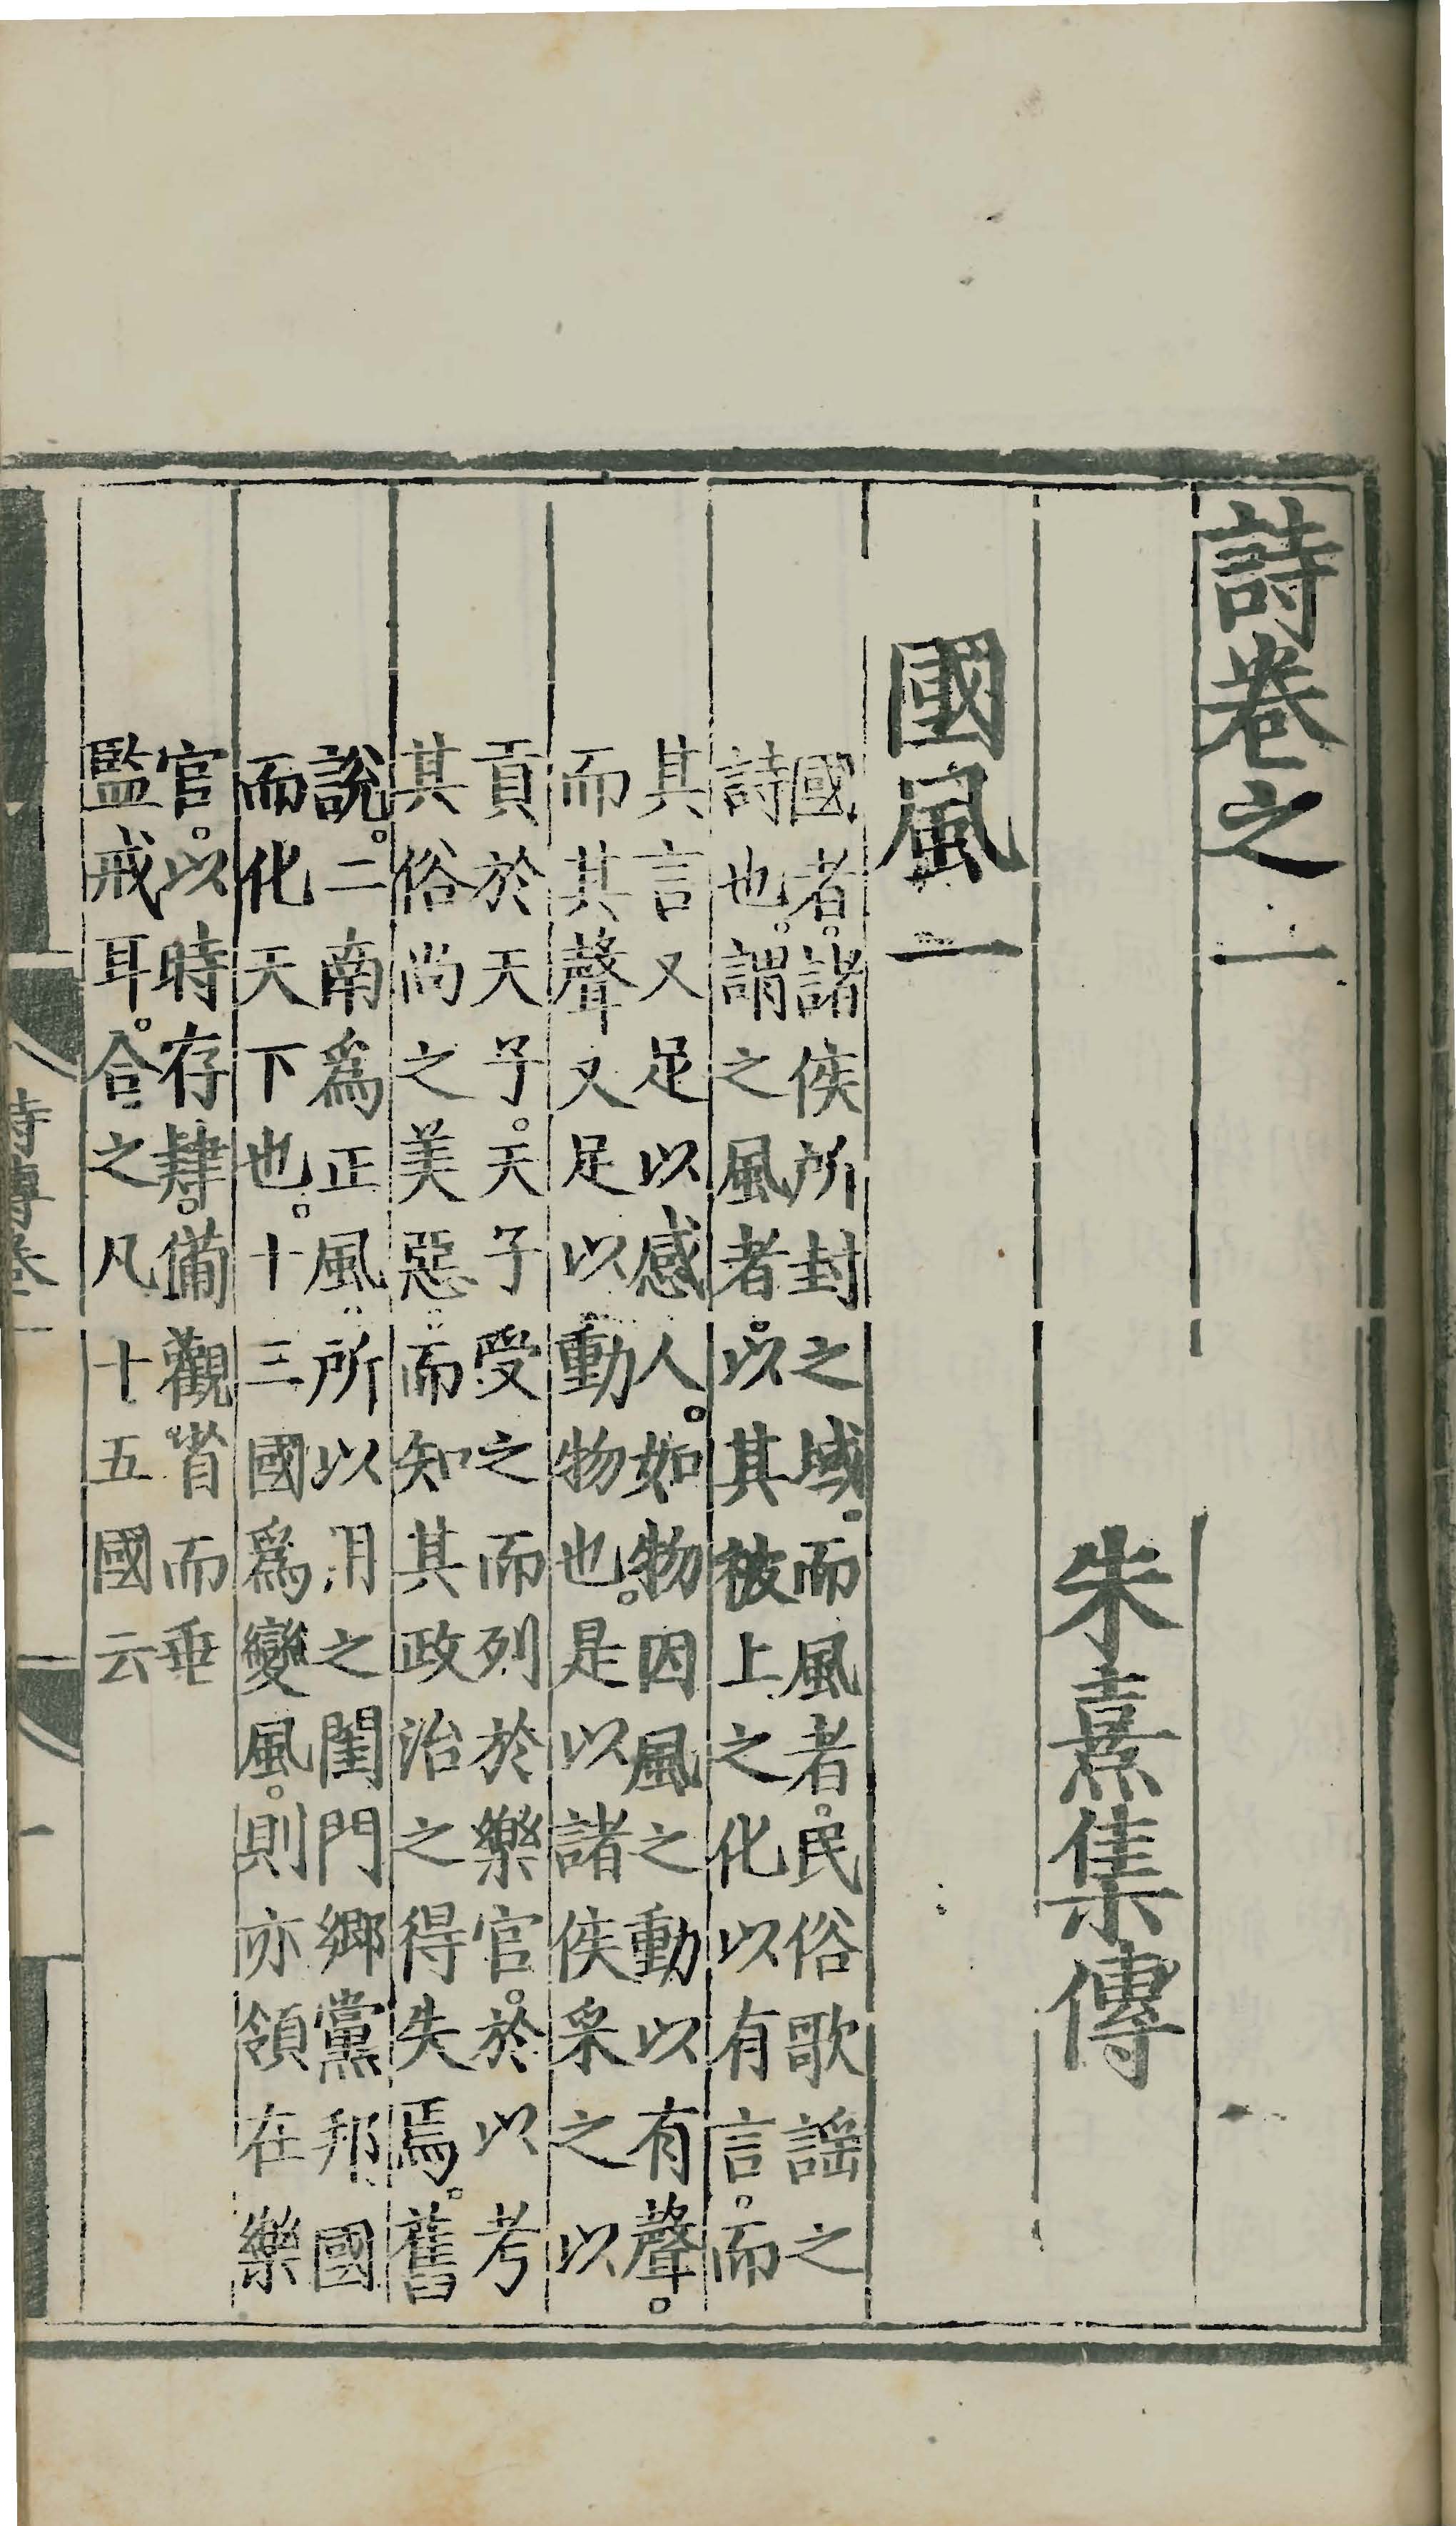 詩卷之一
朱熹集傳
國風一
國者。諸侯所封之域。而風者。民俗歌謡之
詩也。謂之風者。以其被上之化以有言。而
其言又足以感人。如物因風之動以有聲。
而其聲又足以動物也。是以諸侯采之以
貢於天子。天子受之而列於樂官。於以考
其俗尚之美惡。而知其政治之得失焉。舊
說。二南爲正風。所以用之閨門鄉黨邦國
而化天下也。十三國爲變風。則亦領在樂
官。以時存肄。備觀省而垂
監戒耳。合之凡十五國云
詩傳卷一
一